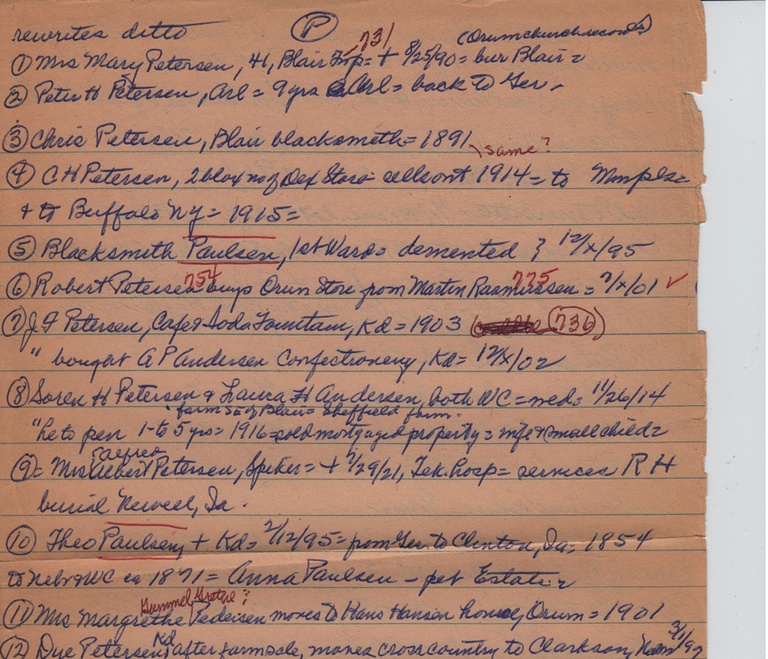 rewrites ditto (P) (Orum church records)
① Mrs Mary Petersen, 41, Blair Frp = + 8/25/90 = bur Blair = 731
② Peter H Petersen, Arl = 9 yrs Arl = back to Ger.
③ Chris Petersen, Blair blacksmith = 1891 \ same?
④ C H Petersen, 2 blox no of Dex Store = sells out 1914 = to Mnpls =
+ to Buffalo NY = 1915 =
⑤ Blacksmith Paulsen, 1st Ward = demented 12/x/95
⑥ Robert Petersen 754 buys Orum Store from Martin Rasmussen 775 = 2/x/01 ✓
⑦ J F Petersen, Cafe & Soda Fountain, Kd = 1903 (736)
" bought A P Andersen Confectionery, Kd = 12/x/02
⑧ Soren H Petersen & Laura H Andersen, both WC = med = 11/26/14
farm SE of Blair = Sheffield farm.
" he to pen 1 to 5 yrs = 1916 = sold mortgaged property = wife & small child =
⑨ = Mrs Petersen, Spiker = + 2/29/21, Tek. hosp = services R H
burial Newell, Ia.
⑩ Theo Paulsen, + Kd = 2/12/95 = from Ger. to Clinton, Ia = 1854
to Nebr & WC ca 1871 = Anna Paulsen - pet Estate =
Gummel Gretje?
⑪ Mrs Margrethe Pedersen moves to Hans Hansen house, Orum = 1901
⑫ Dye Petersen, Kd after farm sale, moves cross country to Clarkson,